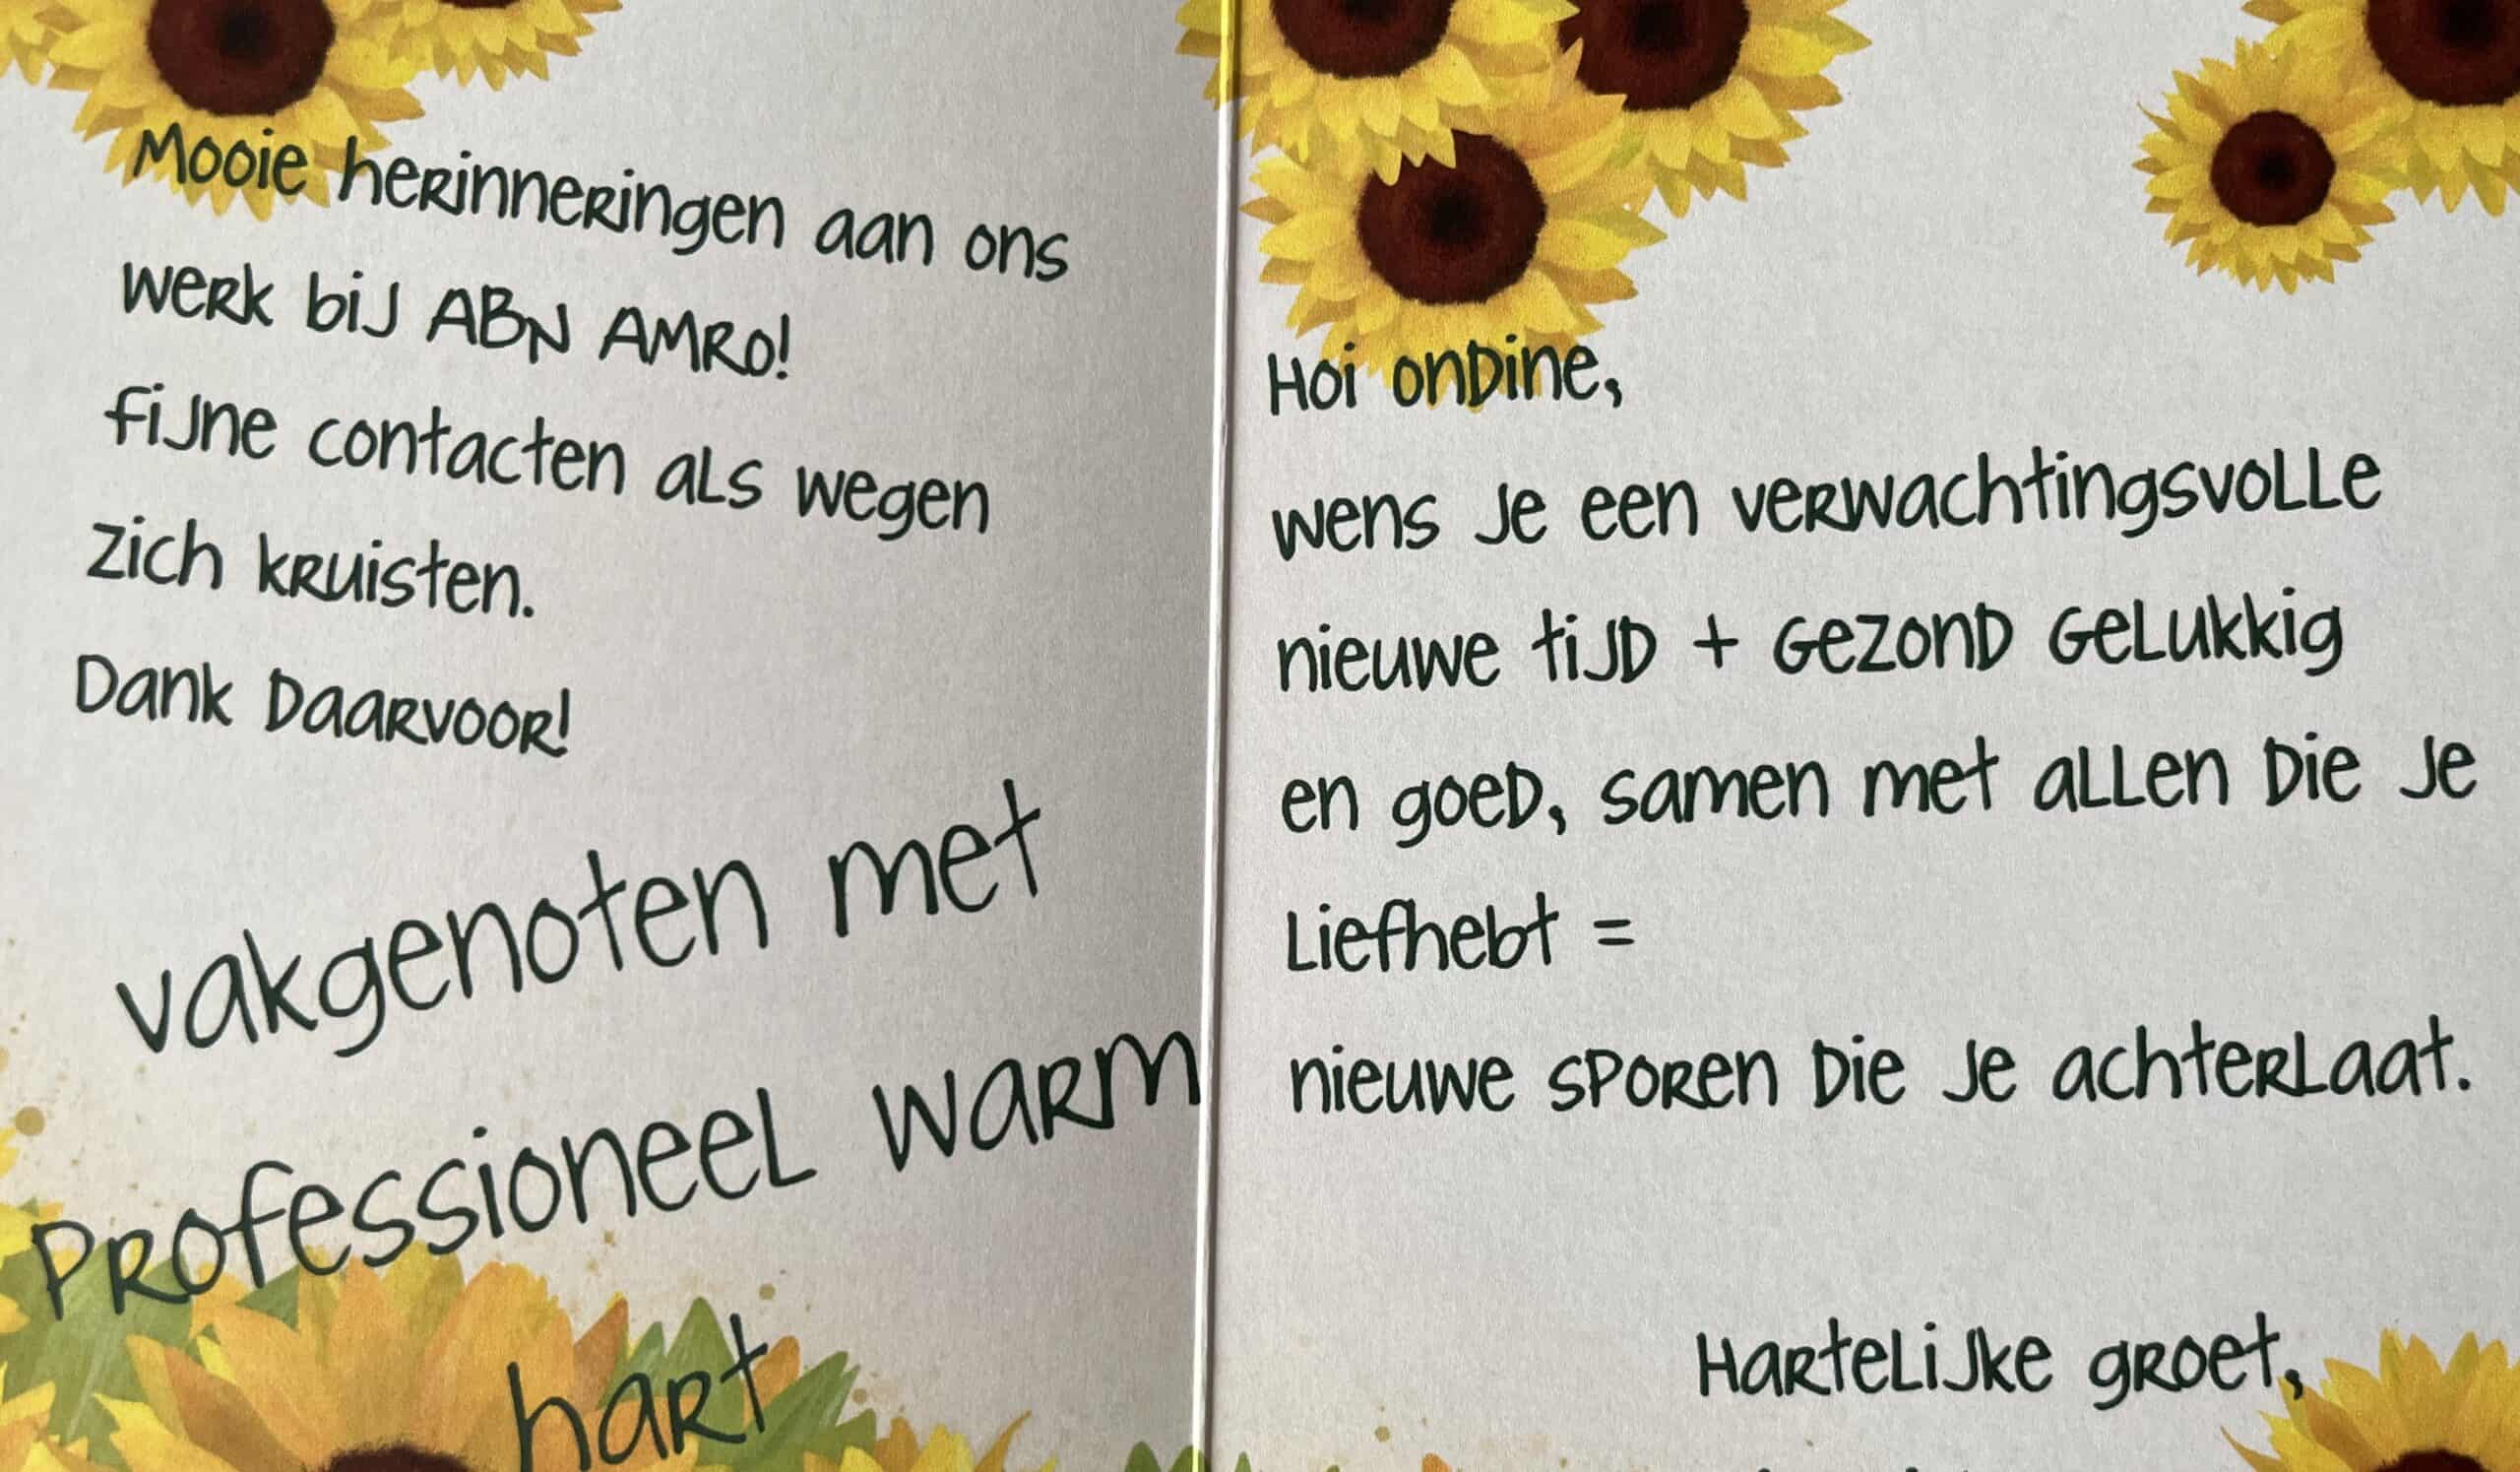 Mooie herinneringen aan ons
werk bij ABN AMRO!
fijne contacten als wegen
zich kruisten.
Dank Daarvoor!
vakgenoten met
professioneel warm
hart
Hoi Ondine,
wens je een verwachtingsvolle
nieuwe tijd + gezond gelukkig
en goed, samen met allen die je
liefhebt =
nieuwe sporen die je achterlaat.
Hartelijke groet,